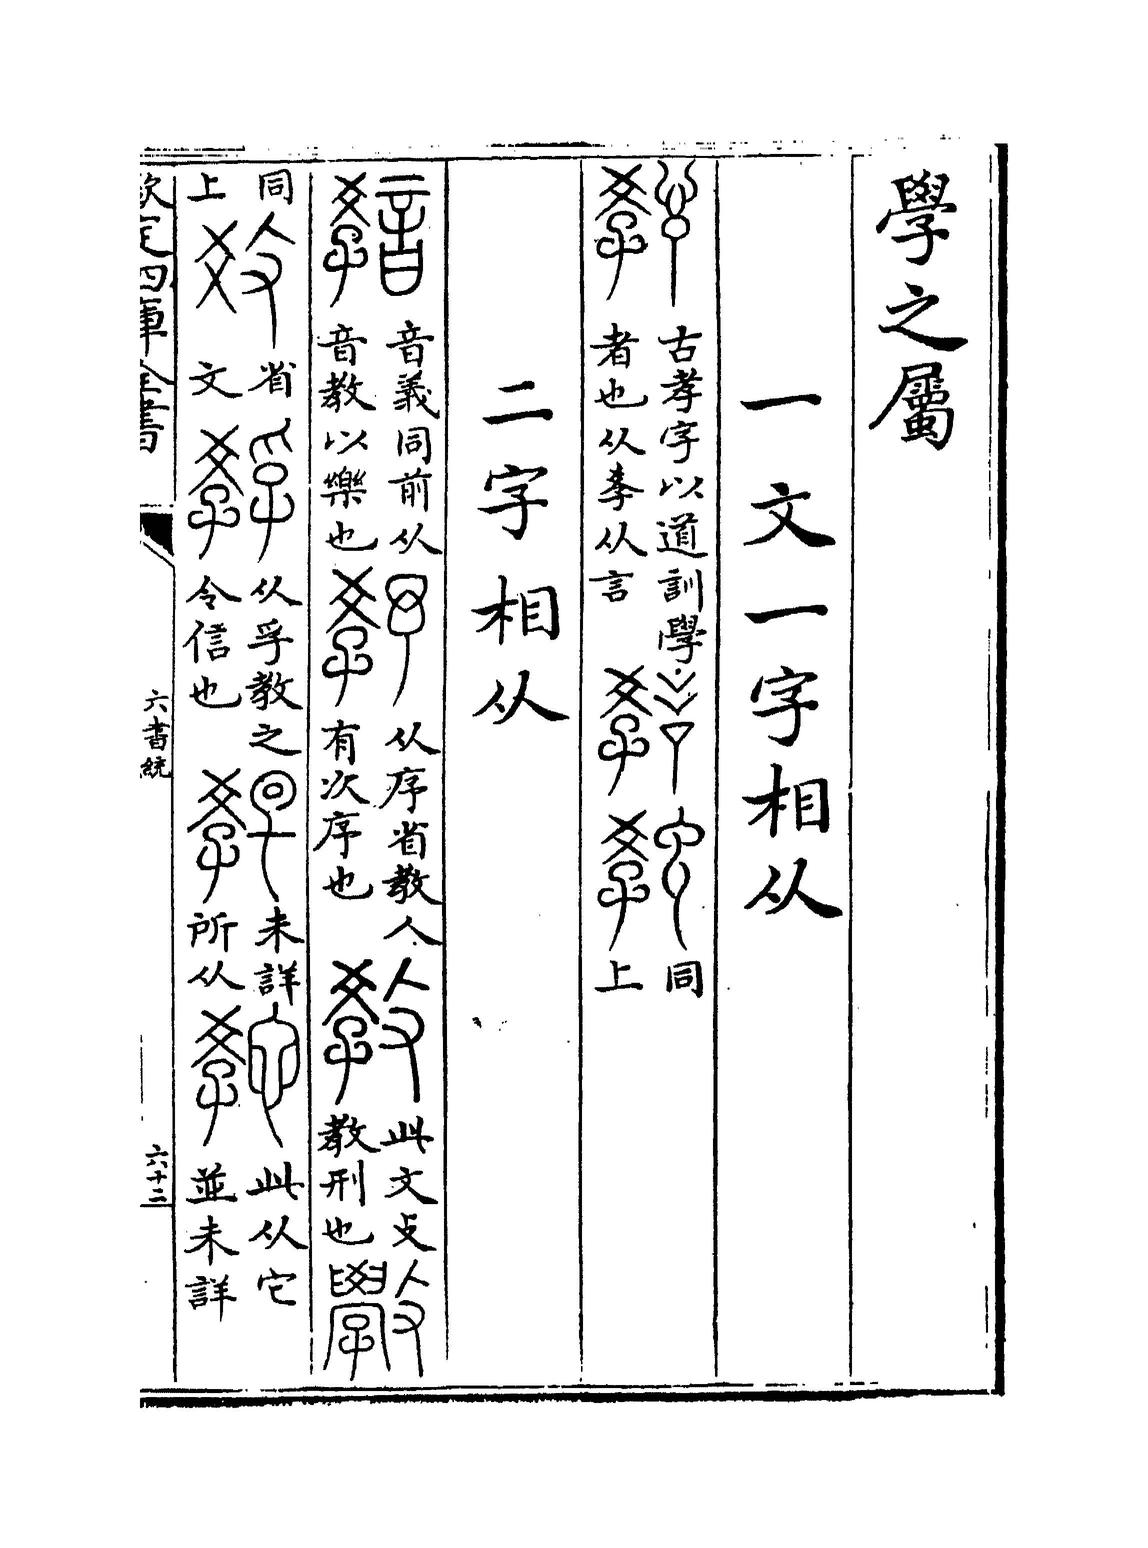 學之屬
一文一字相从
古孝字以道訓學
者也从孝从言
同
上
二字相从
音義同前从
音教以樂也
从序省教人
有次序也
此文攴
教刑也
同
上
省
文
从孚教之
令信也
未詳
所从
此从它
並未詳
欽定四庫全書
六書統
六十二